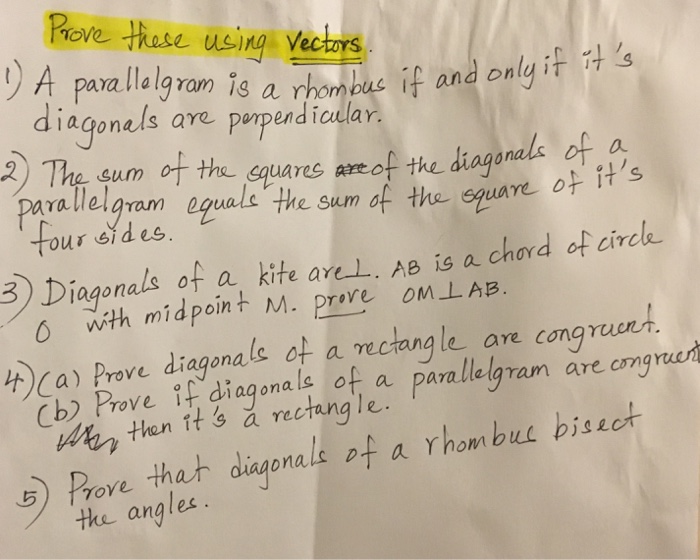 Prove these using vectors.
1) A parallelgram is a rhombus if and only if it's
diagonals are perpendicular.
2) The sum of the squares are of the diagonals of a
parallelgram equals the sum of the square of it's
four sides.
3) Diagonals of a kite are ⊥. AB is a chord of circle
O with midpoint M. prove OM ⊥ AB.
4) (a) Prove diagonals of a rectangle are congruent.
(b) Prove if diagonals of a parallelgram are congruent
then it's a rectangle.
5) Prove that diagonals of a rhombus bisect
the angles.